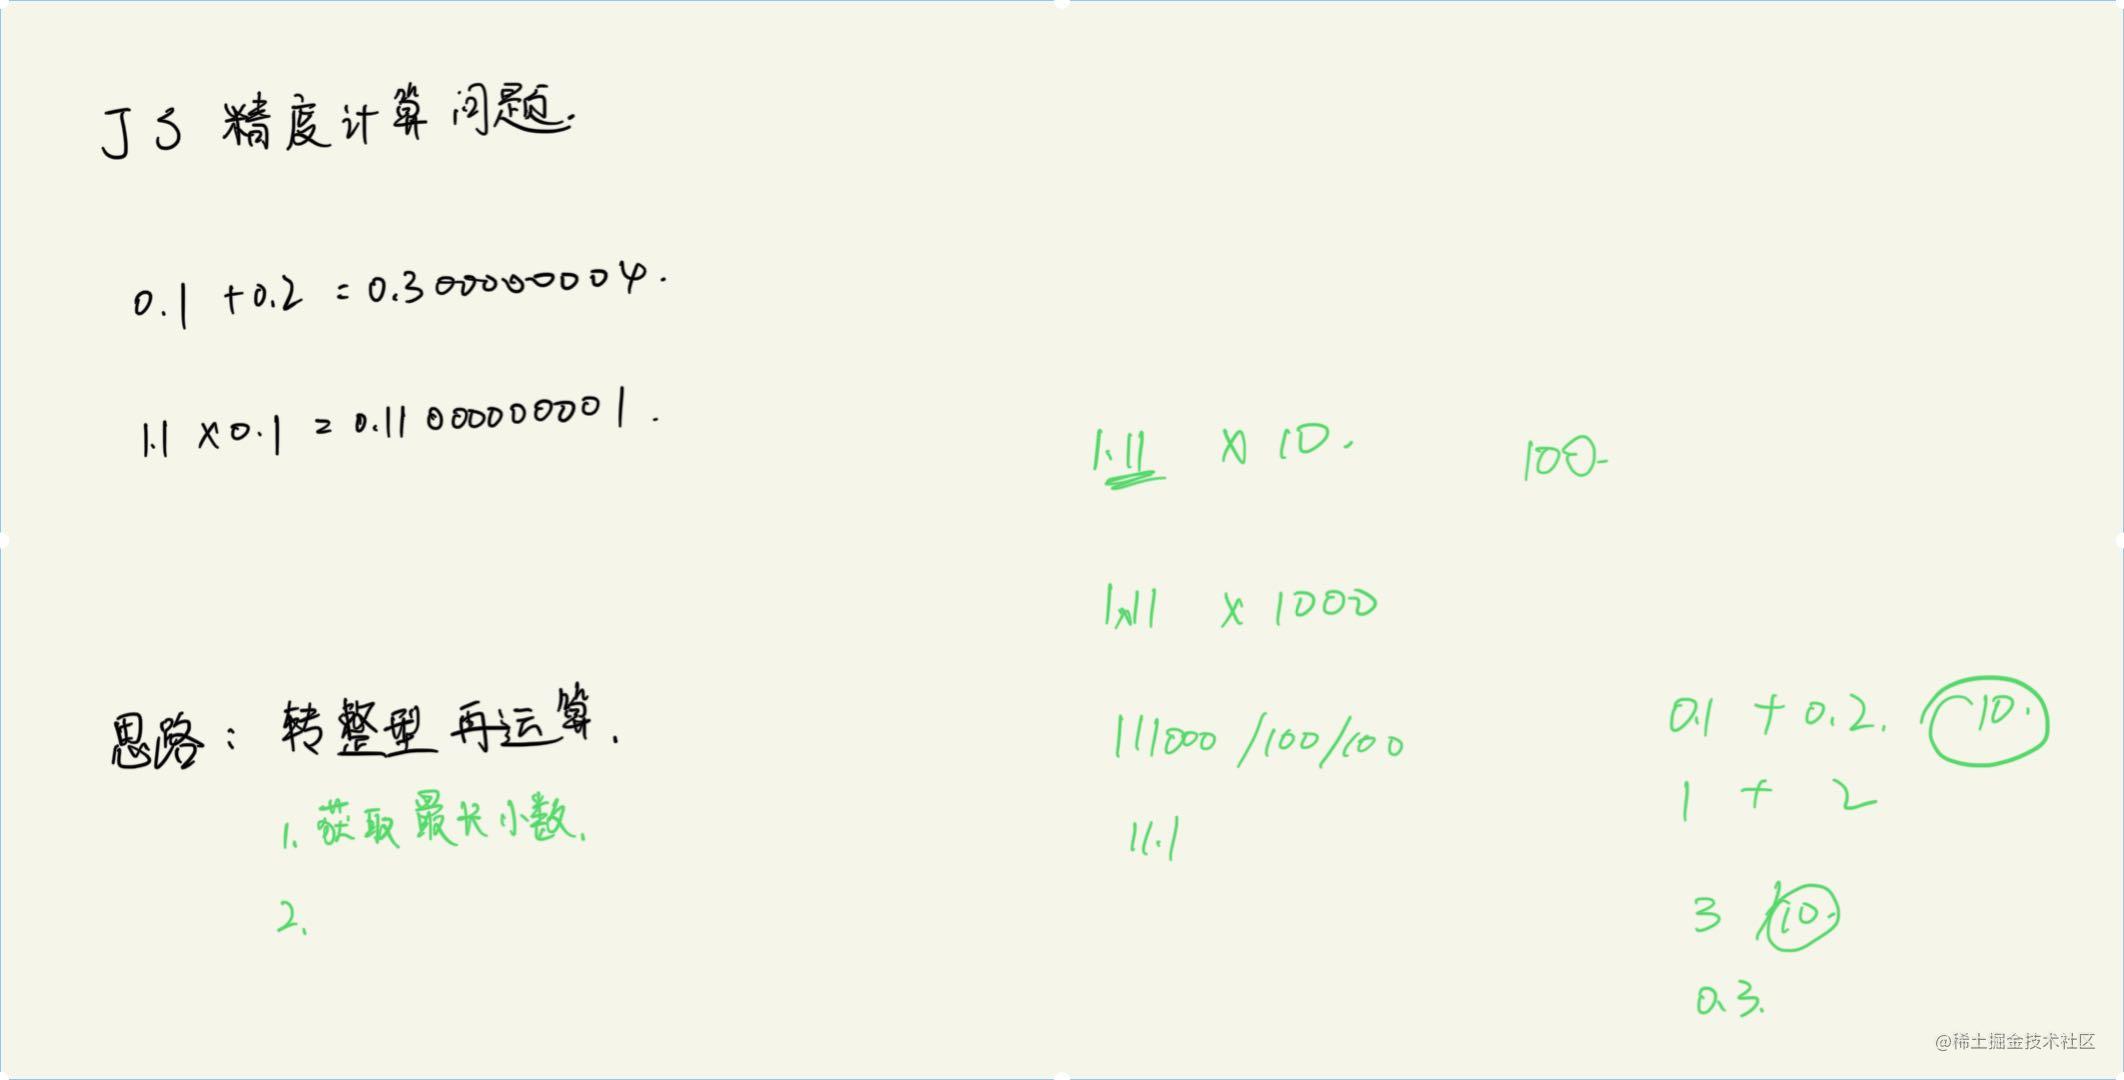 JS 精度计算问题.
0.1 + 0.2 = 0.3000000004.
1.1 × 0.1 = 0.11000000001.
1.11 × 10. 100.
1.11 × 1000
思路：转整型再运算.
1. 获取最长小数.
2.
111000 /100/100
11.1
0.1 + 0.2. 10.
1 + 2
3 /10.
0.3.
@稀土掘金技术社区